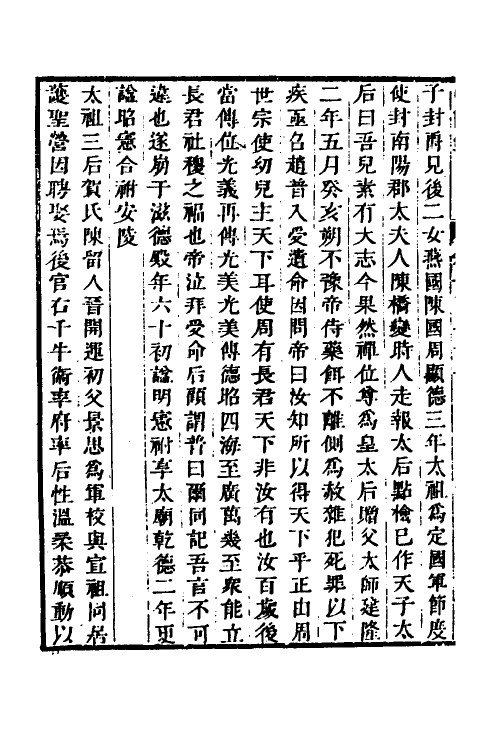 子封酉兄後二女燕國陳國周顯德三年太祖爲定國軍節度
使封南陽郡太夫人陳橋變時人走報太后點檢已作天子太
后曰吾兒素有大志今果然禪位尊爲皇太后贈父太師建隆
二年五月癸亥朔不豫帝侍藥餌不離側爲赦雜犯死罪以下
疾亟召趙普入受遺命因問帝曰汝知所以得天下乎正由周
世宗使幼兒主天下耳使周有長君天下非汝有也汝百歲後
當傳位光義再傳光美光美傳德昭四海至廣萬幾至衆能立
長君社稷之福也帝泣拜受命后顧謂普曰爾同記吾言不可
違也遂崩于滋德殿年六十初諡明憲祔享太廟乾德二年更
諡昭憲合祔安陵
太祖三后賀氏陳留人晉開運初父景思爲軍校與宣祖同居
護聖營因聘娶焉後官右千牛衛率府率后性溫柔恭順動以